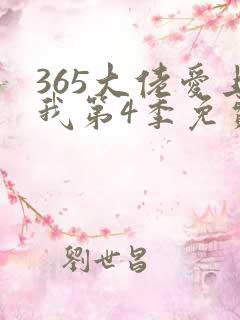 365大佬爱上
我第4季免费
劉世昌